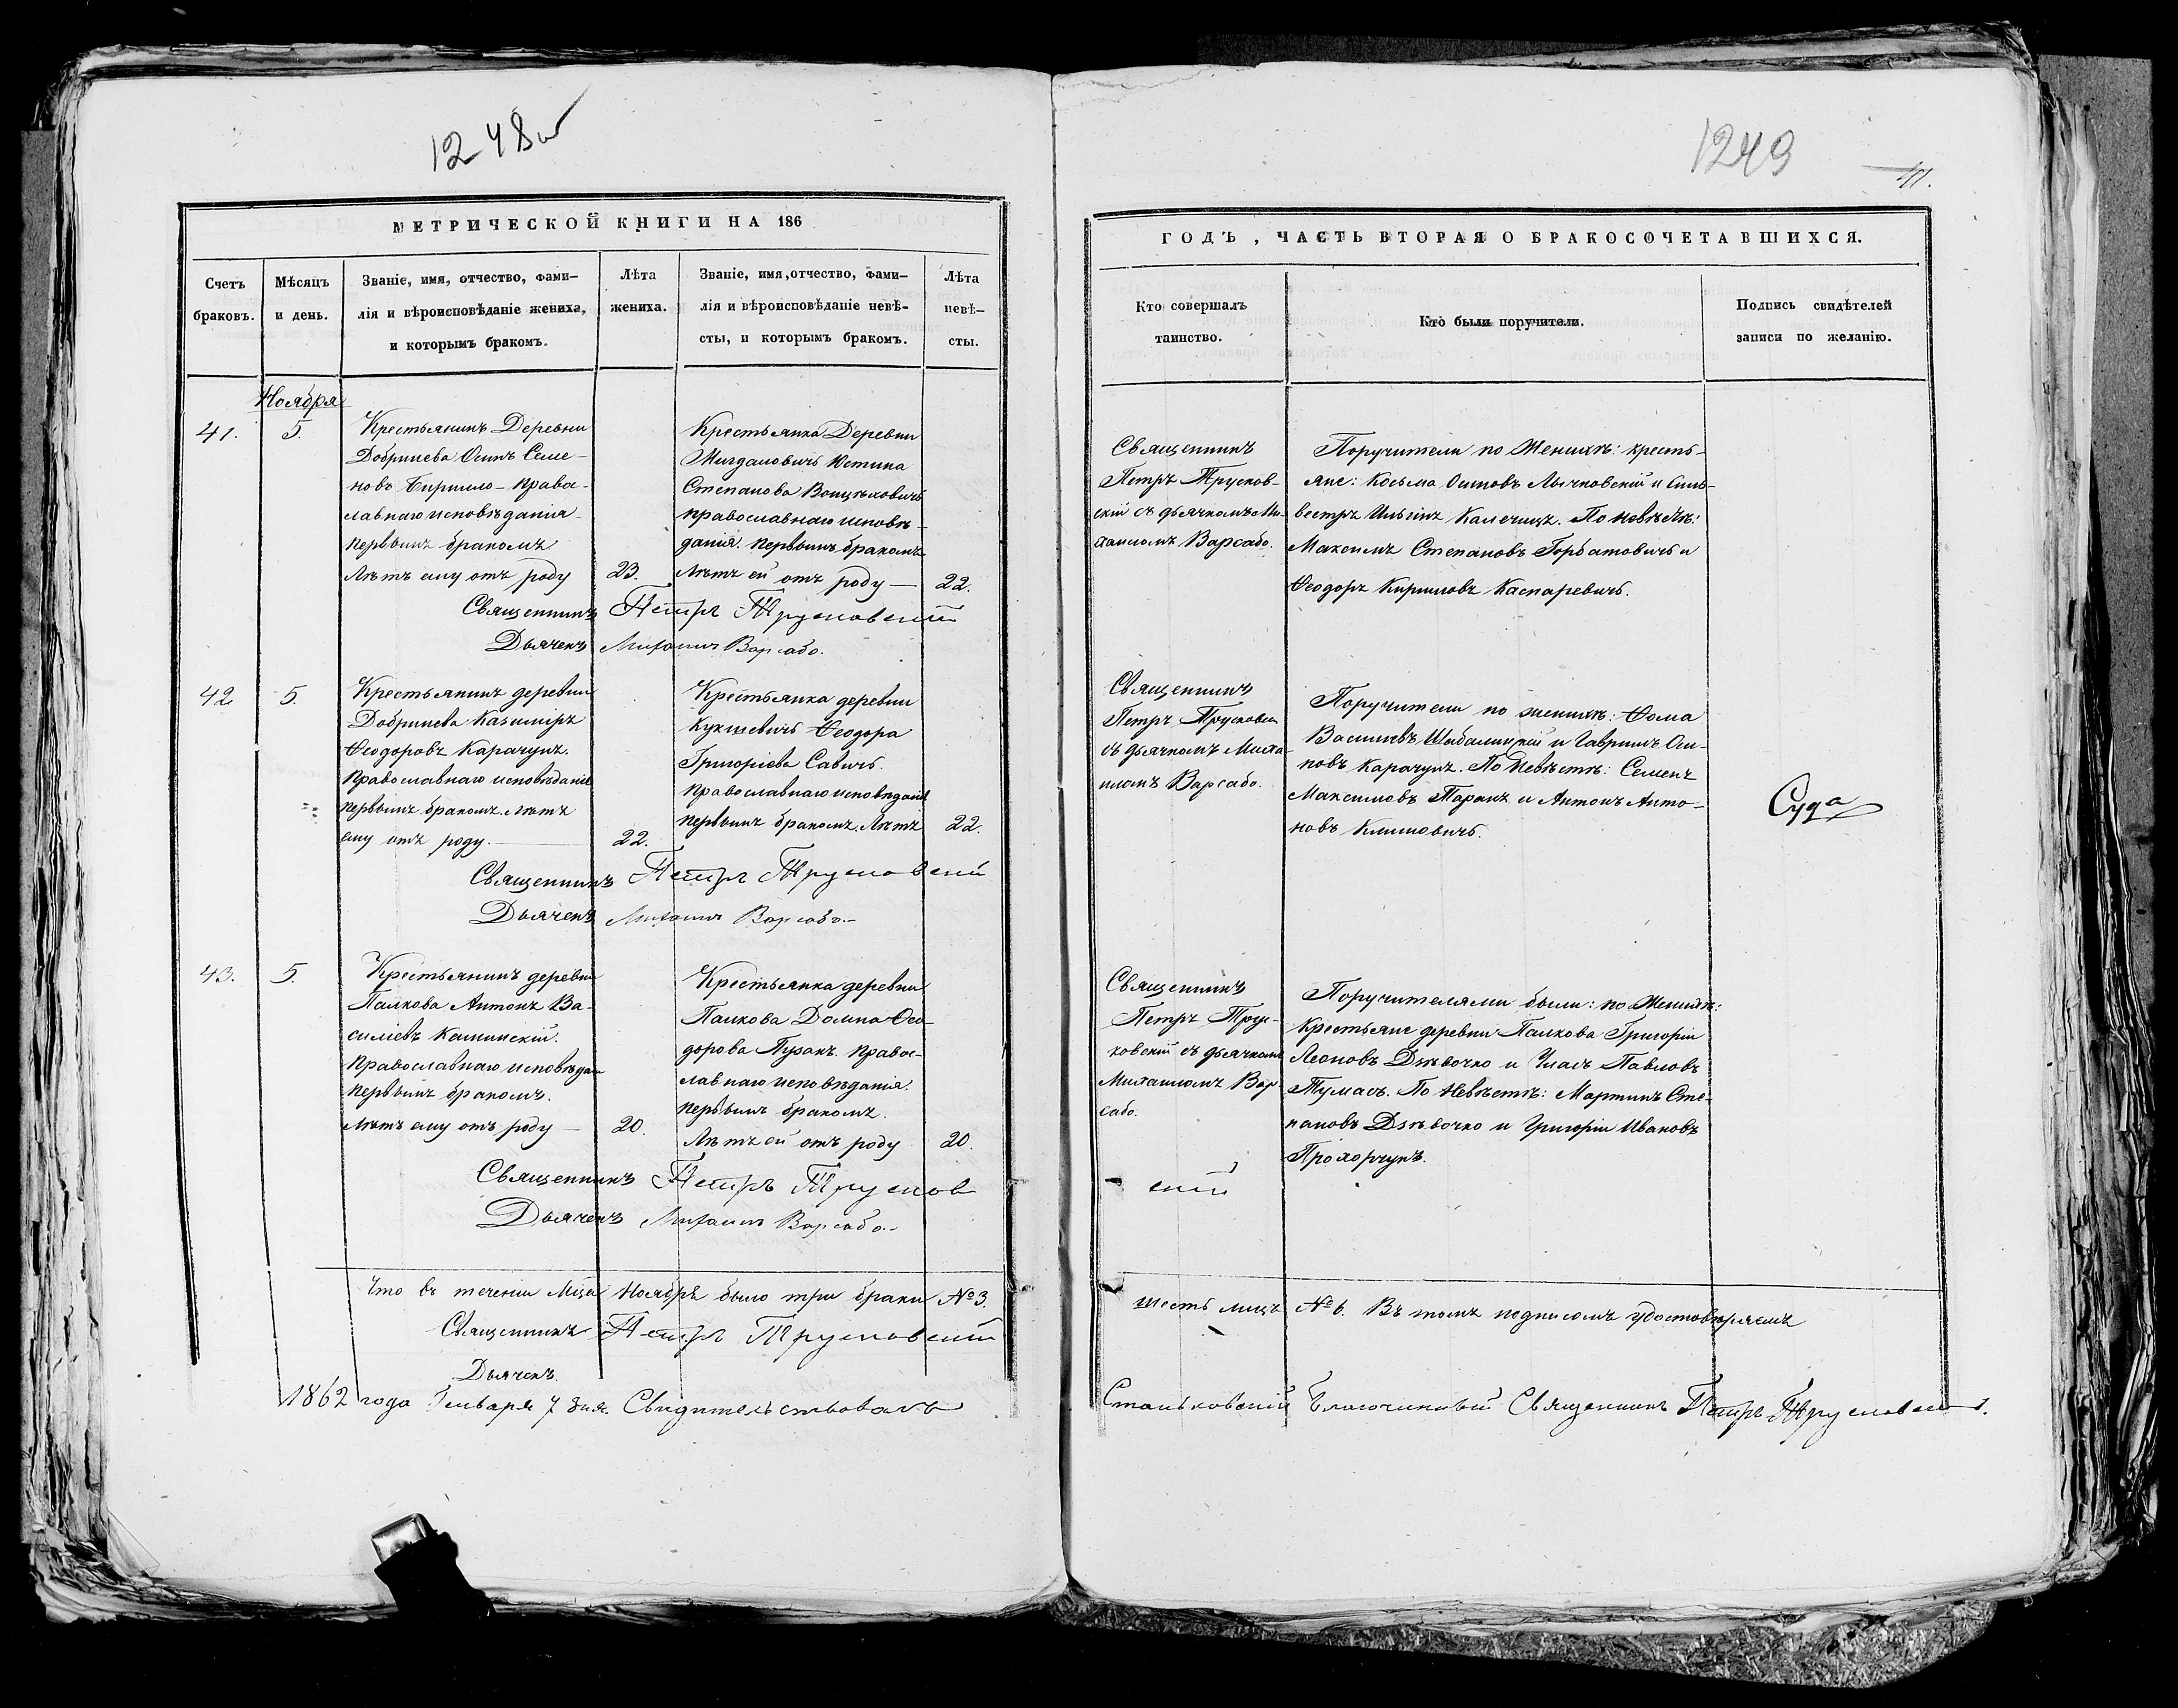 1248
1249
41.
МЕТРИЧЕСКОЙ КНИГИ НА 186
ГОДЪ, ЧАСТЬ ВТОРАЯ О БРАКОСОЧЕТАВШИХСЯ.
Счетъ
браковъ.
Мѣсяцъ
и день.
Званіе, имя, отчество, фами–
лія и вѣроисповѣданіе жениха,
и которымъ бракомъ.
Лѣта
жениха.
Званіе, имя, отчество, фами–
лія и вѣроисповѣданіе невѣ–
сты, и которымъ бракомъ.
Лѣта
невѣ–
сты.
Кто совершалъ
таинство.
Кто были поручители.
Подпись свидѣтелей
записи по желанію.
Ноября
41.
5.
Крестьянинъ Деревни
Добринева Осипъ Семе-
новъ Кирилло - Право-
славнаго исповѣданія
первымъ бракомъ
Лѣтъ ему отъ роду
23.
Крестьянка Деревни
Мигдаловичъ Юстина
Степанова Воицѣховичъ
православнаго исповѣ-
данія. первымъ бракомъ
Лѣтъ ей отъ роду —
22.
Священникъ Петръ Трусковскій
Дьячекъ Михаилъ Варсабо.
Священникъ
Петръ Трусков-
скій съ дьячкомъ Ми-
хаиломъ Варсабо.
Поручители по Женихѣ: кресть-
яне: Косьма Осиповъ Лычковскій и Силь-
вестръ Ильинъ Калечицъ. По невѣстѣ:
Максимъ Степановъ Горбатовичъ и
Ѳеодоръ Кирилловъ Каспаревичъ.
42.
5.
Крестьянинъ деревни
Добринева Казиміръ
Ѳеодоровъ Карачунъ.
Православнаго исповѣданія
первымъ бракомъ. Лѣтъ
ему отъ роду.
22.
Крестьянка деревни
Кукшевичъ Ѳеодора
Григоріева Савичъ.
Православнаго исповѣданія
первымъ бракомъ. Лѣтъ
22.
Священникъ Петръ Трусковскій
Дьячекъ Михаилъ Варсабо.-
Священникъ
Петръ Трусковскій
съ дьячкомъ Миха-
иломъ Варсабо.
Поручители по женихѣ: Ѳома
Васильевъ Шабалинскій и Гаврилъ Оси-
повъ Карачунъ. По Невѣстѣ: Семенъ
Максимовъ Таранъ и Антонъ Анто-
новъ Климовичъ.
Суда
43.
5.
Крестьянинъ деревни
Палкова Антонъ Ва-
силіевъ Кашинскій.
Православнаго исповѣдан
первымъ бракомъ.
Лѣтъ ему отъ роду —
20.
Крестьянка деревни
Палкова Домна Ѳео-
дорова Пузакъ. Право-
славнаго исповѣданія.
первымъ бракомъ.
Лѣтъ ей отъ роду
20.
Священникъ Петръ Трусков
скій
Дьячекъ Михаилъ Варсабо.-
Священникъ
Петръ Трус-
ковскій съ дьячкомъ
Михаиломъ Вар-
сабо.
Поручителями были: по Женихѣ:
Крестьяне деревни Палкова Григорій
Леоновъ Дзѣвочко и Уласъ Павловъ
Тумасъ. По Невѣстѣ: Мартинъ Сте-
пановъ Дзѣвочко и Григорій Ивановъ
Прохорчукъ.
Что въ теченіи Мѣца Ноября было три браки №3.
шесть лицъ №6. Въ томъ подписомъ удостовѣряемъ
Священникъ Петръ Трусковскій
Дьячекъ.
1862 года Генваря 7 дня. Свидѣтельствовалъ
Станьковскій Благочинный Священникъ Петръ Трусковскій.